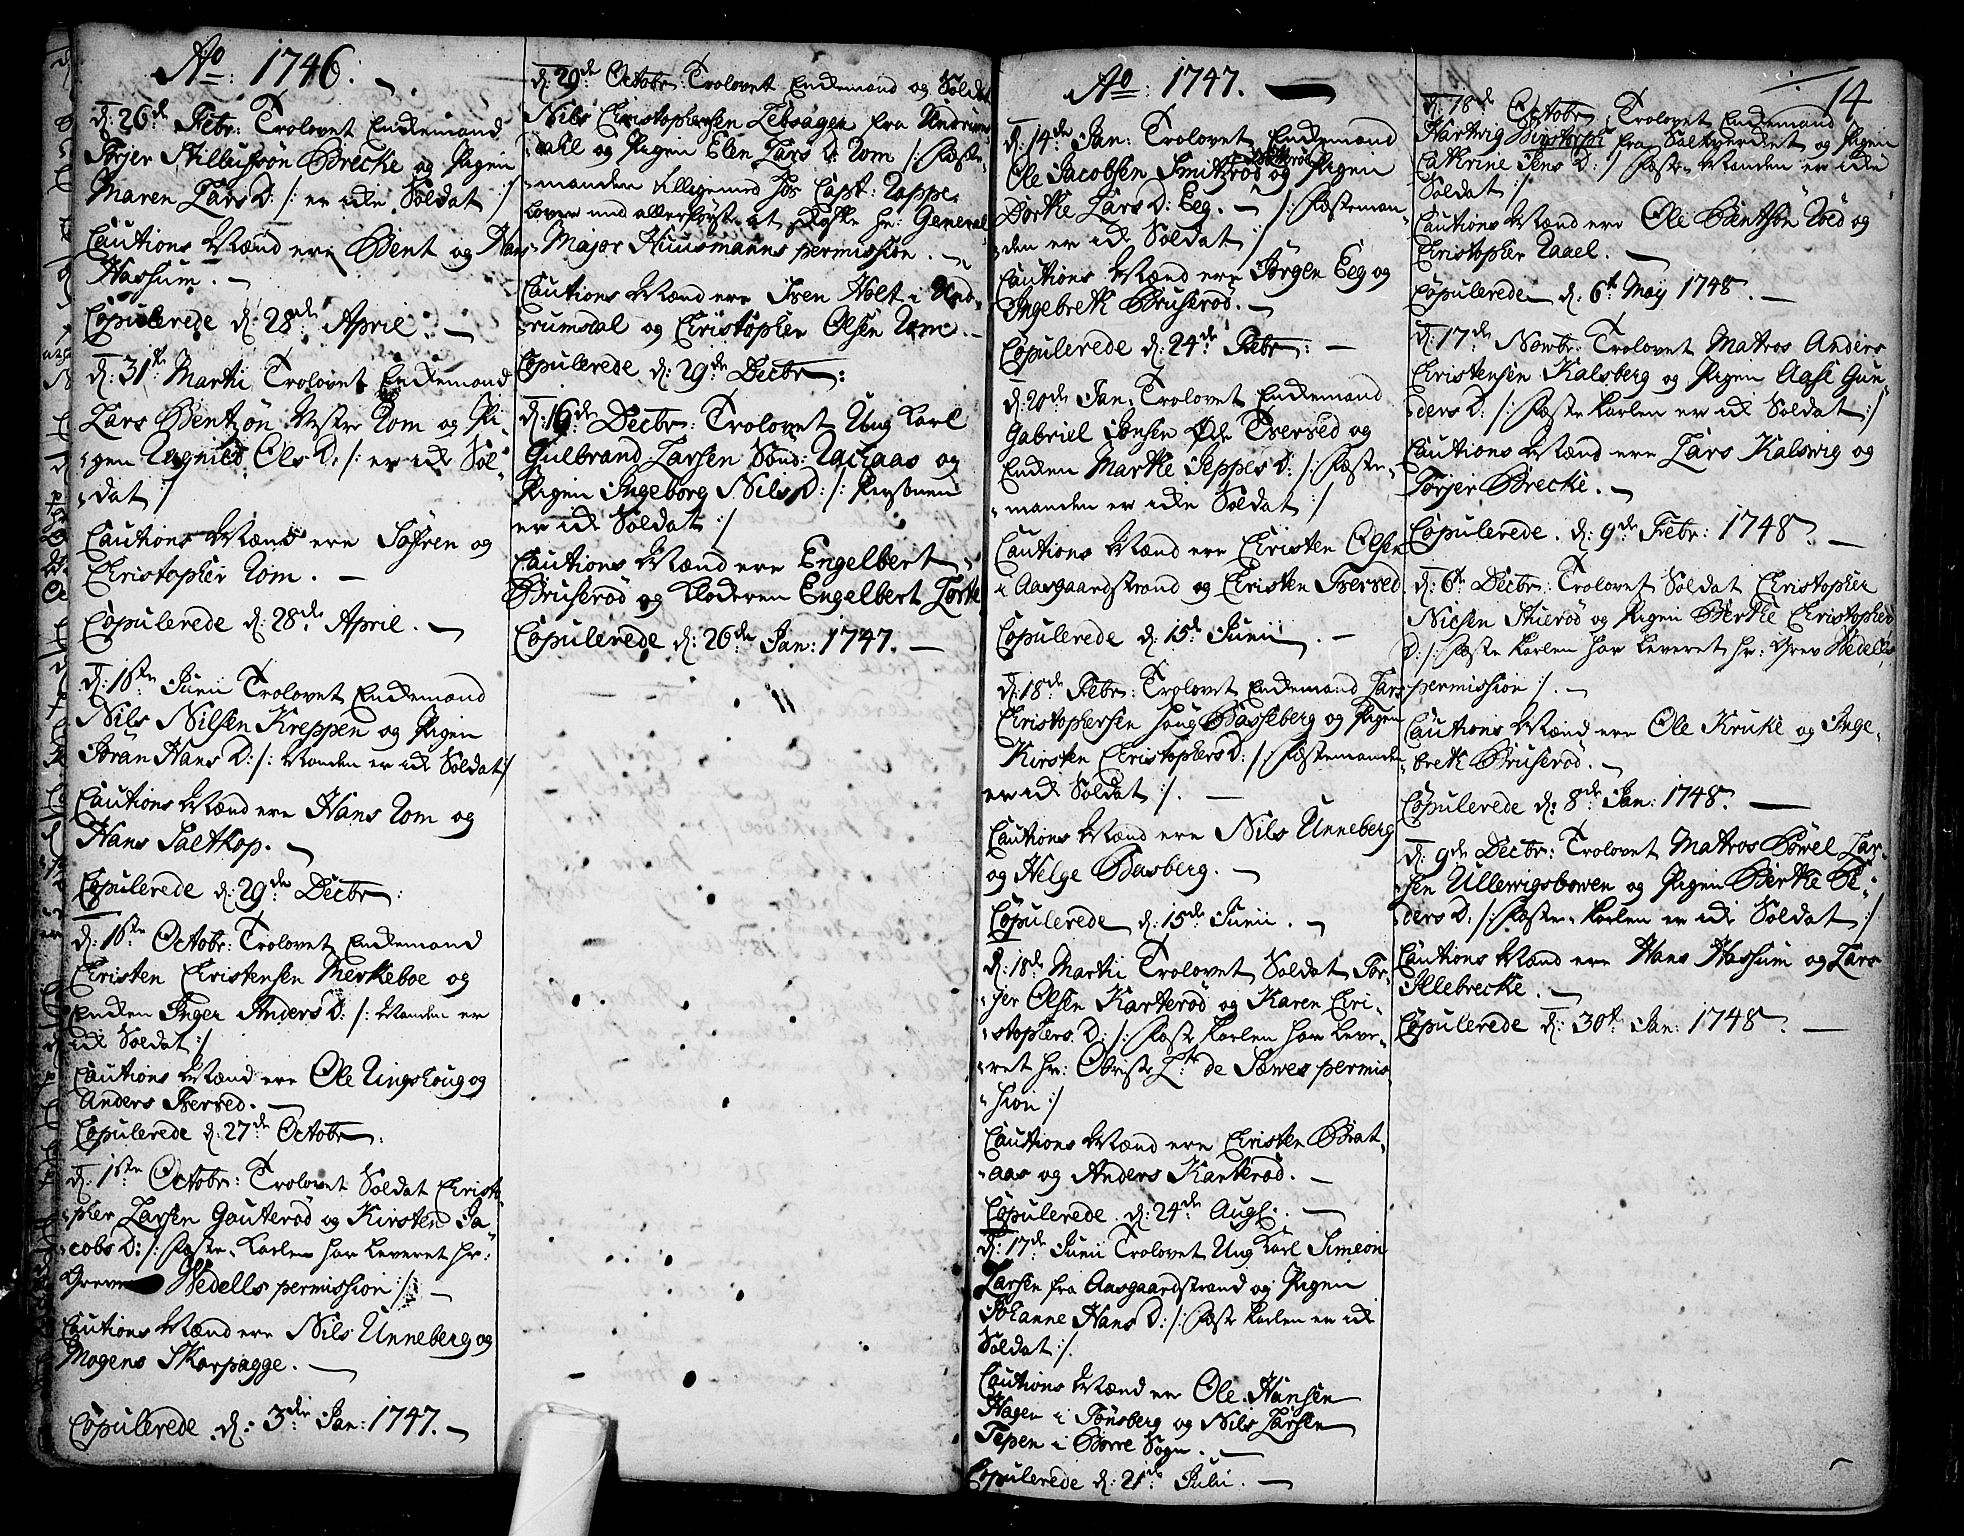 Ao: 1746.
d: 26de Febr: Trolovet Enckemand
Torjer Stillufsøn Brecke og Pigen
Maren Lars D: /: er icke Soldat :/
Cautions Mænd ere Bent og Hans
Hassum.
Copulerede d: 28de April.
d: 31te Martii Trolovet Enckemand
Lars Bentzøn Vestre Rom og Pi-
gen Ragnild Ols D: /: er ick Sol-
dat :/
Cautions Mænd ere Søfren og
Christopher Rom.
Copulerede d: 28de April.
d: 16ten Junii Trolovet Enckemand
Nils Nilsen Kreppen og Pigen
Jøran Hans D: /: Manden er ick Soldat :/
Cautions Mænd ere Hans Rom og
Hans Saltkop.
Copulerede d: 29de Decbr:
d: 16ten Octobr: Trolovet Enckemand
Christen Christensen Mørkeboe og
Encken Inger Anders D: /: Manden er
ick Soldat :/
Cautions Mænd ere Ole Ringshoug og
Anders Fresved.
Copulerede d: 27de Octobr:
d: 1ste Octobr: Trolovet Soldat Christo-
pher Larsen Gauterød og Kirsten Ja-
cobs D: /: Fæste Karlen har leveret hr:
Greve Wedells permission :/
Cautions Mænd ere Nils Unneberg og
Mogens Skarpagge.
Copulerede d: 3die Jan: 1747.
d: 29de Octobr: Trolovet Enckemand og Soldat
Nils Christophersen Lebsagen fra Undrums-
dahl og Pigen Elen Lars D: Rom /: Fæste-
manden tilligemed hos Capt: Rappe
lover med allerførste at skaffe hr: General
Major Huusmanns permission.
Cautions Mænd ere Iven Holt i Und-
rumsdal og Christopher Olsen Rom.
Copulerede d: 29de Decbr:
d: 16de Decbr: Trolovet Ung Karl
Gulbrand Larsen Sønd: Rachaas og
Pigen Ingeborg Nils D: /: Personen
er ick Soldat :/
Cautions Mænd ere Engelbert
Bruserød og Kloderen Engelbert
Copulerede d: 26de Jan: 1747.
Ao: 1747.
d: 14de Jan: Trolovet Enckemand
Ole Jacobsen Smitzrød og Pigen
Dorthe Lars D: Eeg. /: Fæsteman-
den er ick Soldat :/
Cautions Mænd ere Jørgen Eeg og
Ingebreth Bruserød.
Copulerede d: 24de Febr:
d: 20de Jan: Trolovet Enckemand
Gabriel Jonsen Øde Fresved og
Encken Marthe Jeppes D: /: Fæste-
manden er icke Soldat :/
Cautions Mænd ere Christen Olsen
i Aasgaardstrand og Christen Fresved
Copulerede d: 15de Junii.
d: 18de Febr: Trolovet Enckemand Lars
Christophersen houg Basseberg og Pigen
Kirsten Christophers D: /: Fæstemanden
er ick Soldat :/.
Cautions Mænd ere Nils Unneberg
og Helge Basberg.
Copulerede d: 15de Junii.
d: 18de Martii Trolovet Soldat Tor-
jer Olsen Karterød og Karen Chri-
stophers D: /: Fæste Karlen har leve-
ret hr: Obriste Lt: de Sæwes permis-
sion :/
Cautions Mænd ere Christen Brat-
aas og Anders Karterød.
Copulerede d: 24de Aug:
d: 17de Junii Trolovet Ung Karl Simeon
Larsen fra Aasgaardstrand og Pigen
Johanne Hans D: /: Fæste Karlen er ick
Soldat :/.
Cautions Mænd er Ole Hansen
Hagen i Tønsberg og Nils Larsen
Tepen i Borre Sogn.
Copulerede d: 21de Julii.
14
d: 18de Octobr: Trolovet Enckemand
Hartvig fra Saltverdiet og Pigen
Cathrine Jens D: /: Fæste Manden er icke
Soldat :/
Cautions Mænd ere Ole Bentsøn Roed og
Christopher Raael.
Copulerede d: 6te May 1748.
d: 17de Novbr: Trolovet Matros Anders
Christensen Kalsberg og Pigen Aase Gun-
ders D: /: Fæste Karlen er ick Soldat :/
Cautions Mænd ere Lars Kalswig og
Torjer Brecke.
Copulerede d: 9de Febr: 1748.
d: 6te Decbr: Trolovet Soldat Christopher
Nielsen Stuerød og Pigen Berthe Christophers
D: /: Fæste Karlen har leveret hr: Grev Wedells
permission :/.
Cautions Mænd ere Ole Kruke og Inge-
breth Bruserød.
Copulerede d: 8de Jan: 1748.
d: 9de Decbr: Trolovet Matros Powel Lar-
sen Ullewigsbowen og Pigen Berthe Pe-
ders D: /: Fæste Karlen er ick Soldat :/
Cautions Mænd ere Hans Hassum og Lars
Illebrecke.
Copulerede d: 30te Jan: 1748.